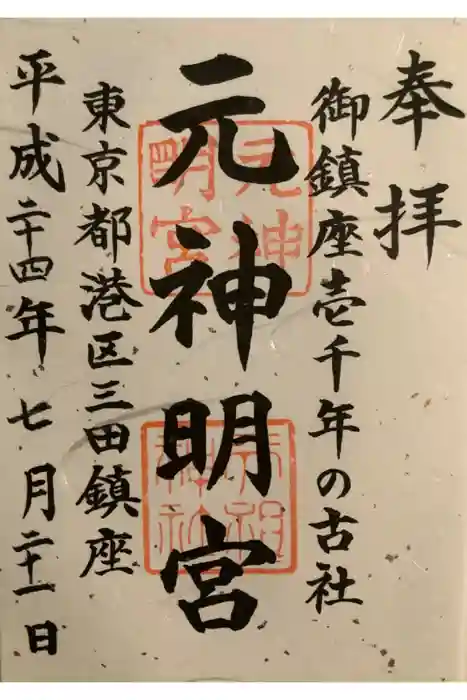 奉拝
御鎮座壱千年の古社
元神明宮
元神明宮
天祖神社
東京都港区三田鎮座
平成二十四年七月二十一日